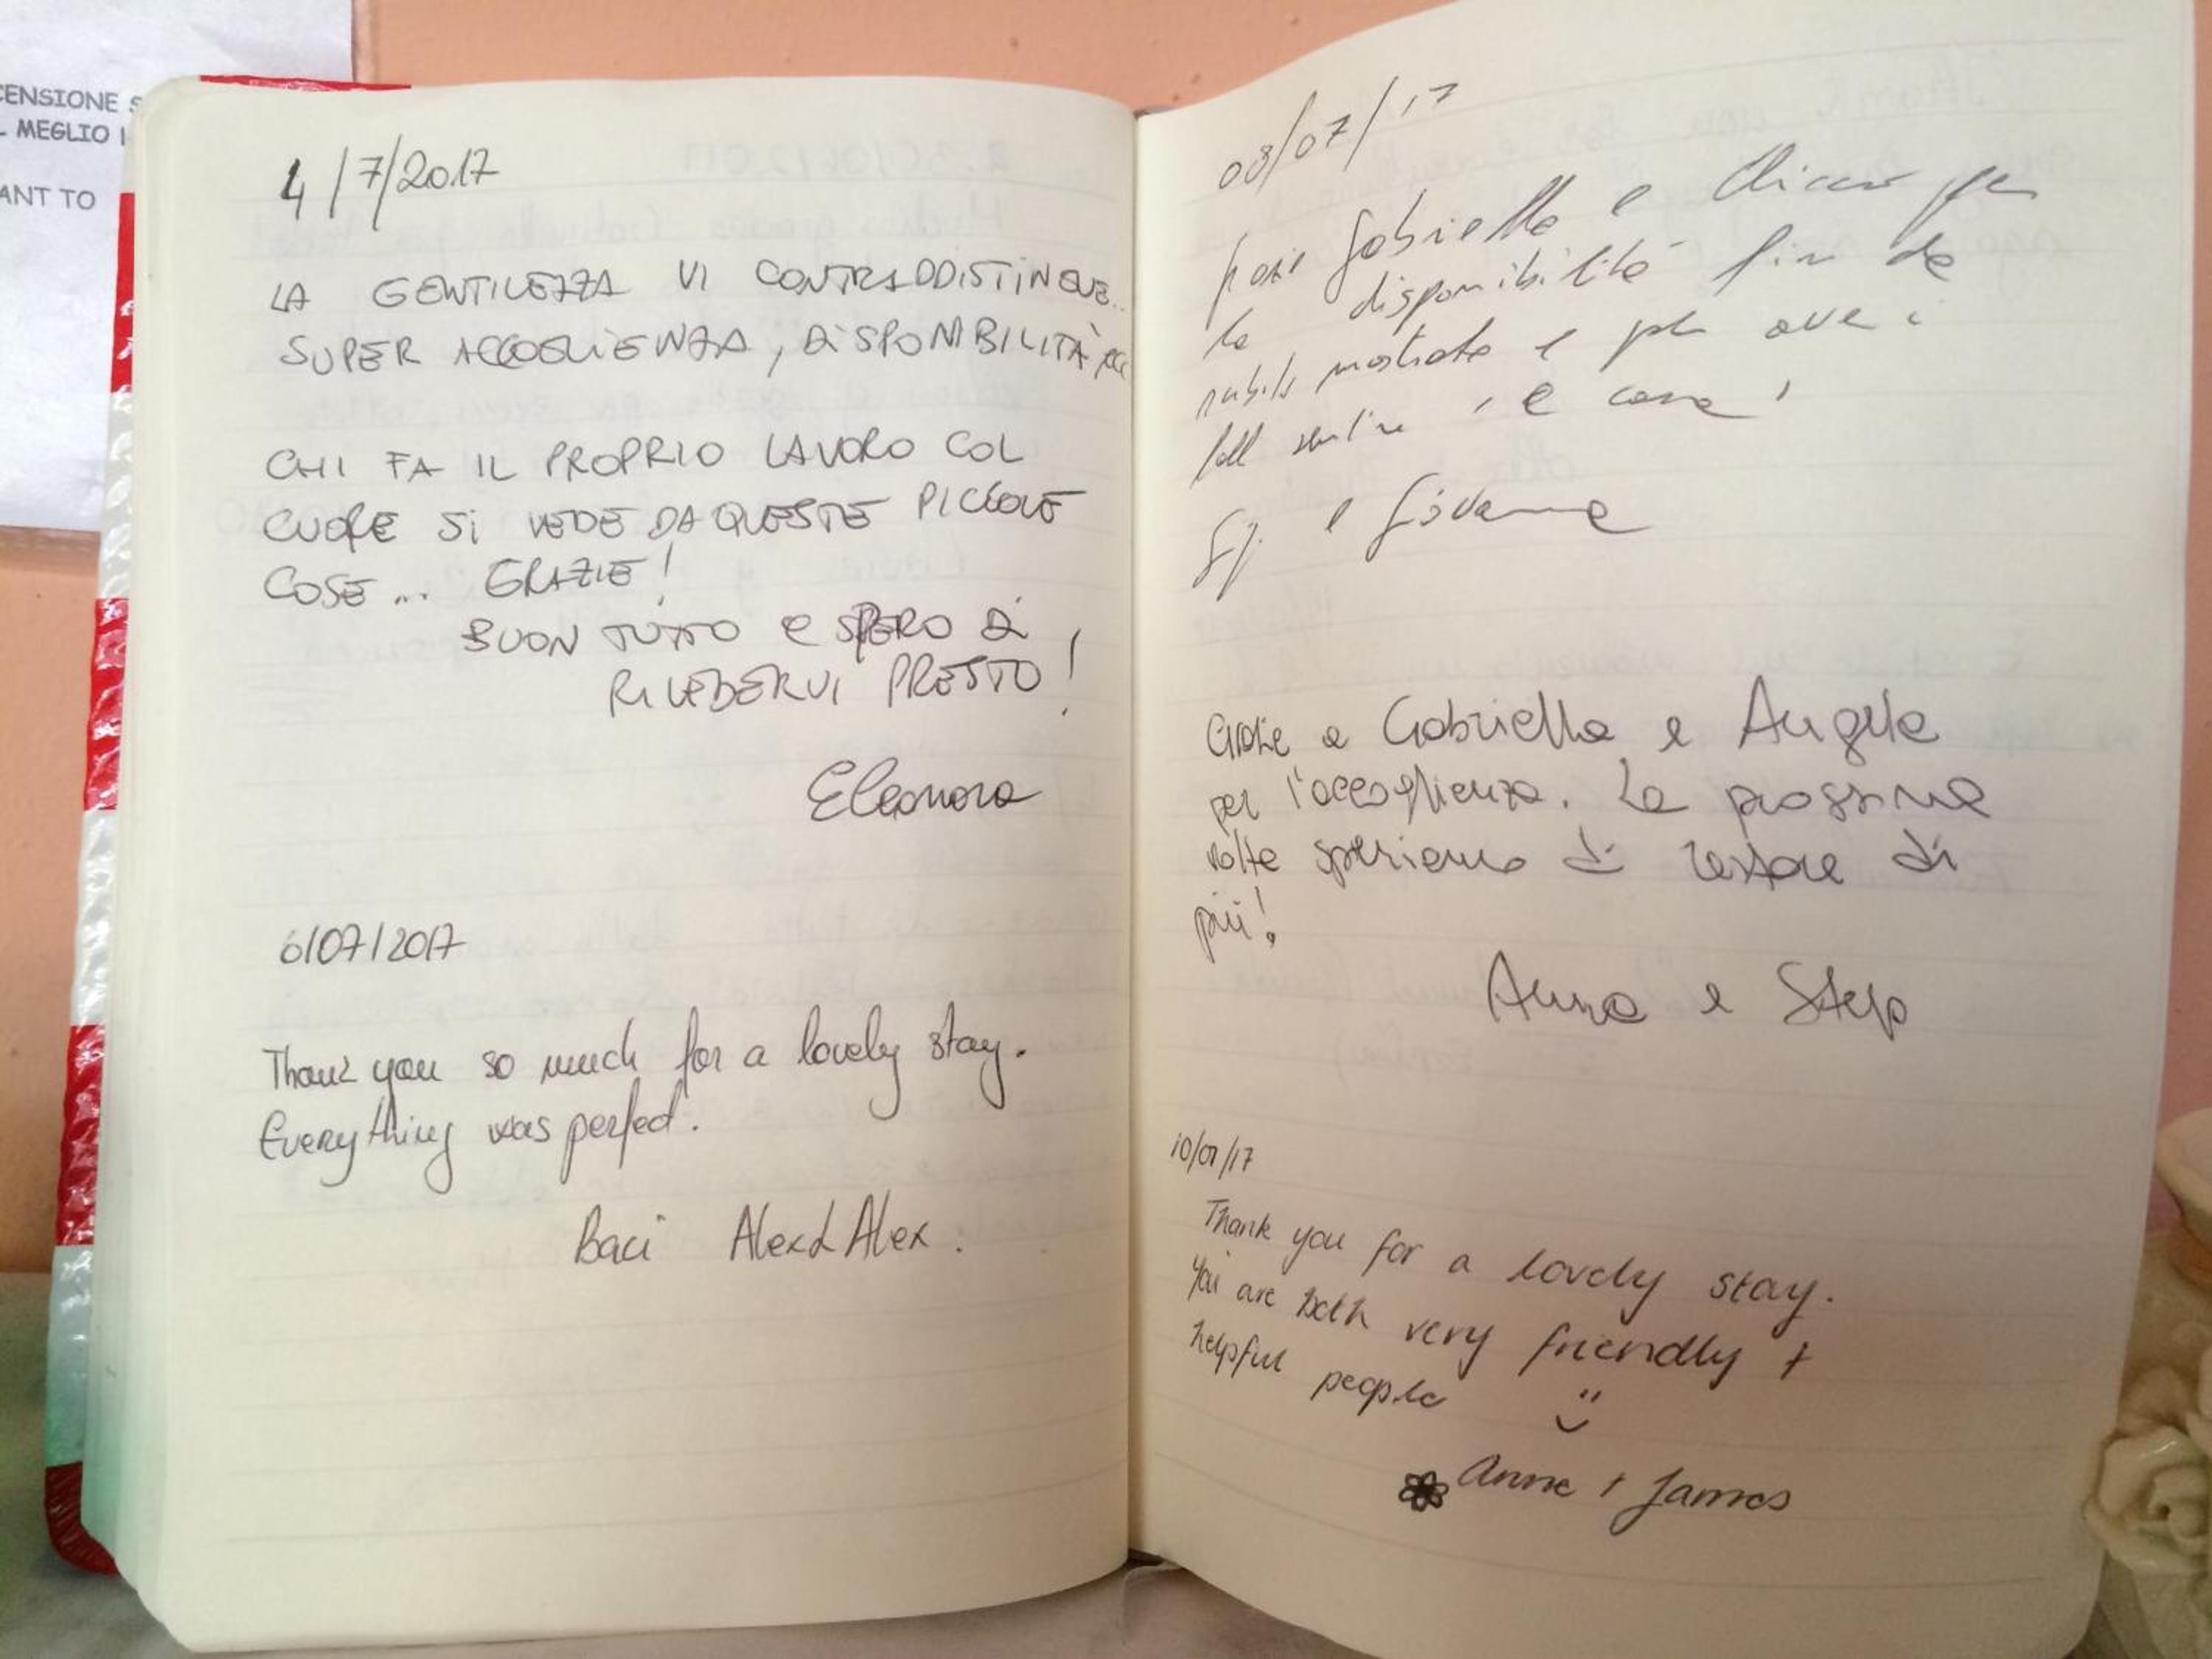 CENSIONE S
L MEGLIO I
ANT TO
4/7/2017
LA GENTILEZZA VI CONTRADDISTINGUE..
SUPER ACCOGLIENZA, DISPONIBILITÀ ecc
CHI FA IL PROPRIO LAVORO COL
CUORE SI VEDE DA QUESTE PICCOLE
COSE... GRAZIE!
BUON TUTTO e SPERO DI
RIVEDERVI PRESTO!
Eleonora
6/07/2017
Thank you so much for a lovely stay.
Everything was perfect.
Baci Alex & Alex.
08/07/17
Gabriella e per
la disponibilità fin da
subito mostrata e per averci
fatt sentire a casa
e Giovanna
Grazie a Gabriella e Angela
per l'accoglienza. La prossima
volta speriamo di restare di
più!
Anna e Step
10/07/17
Thank you for a lovely stay.
You are both very friendly +
helpful people
Anne + James